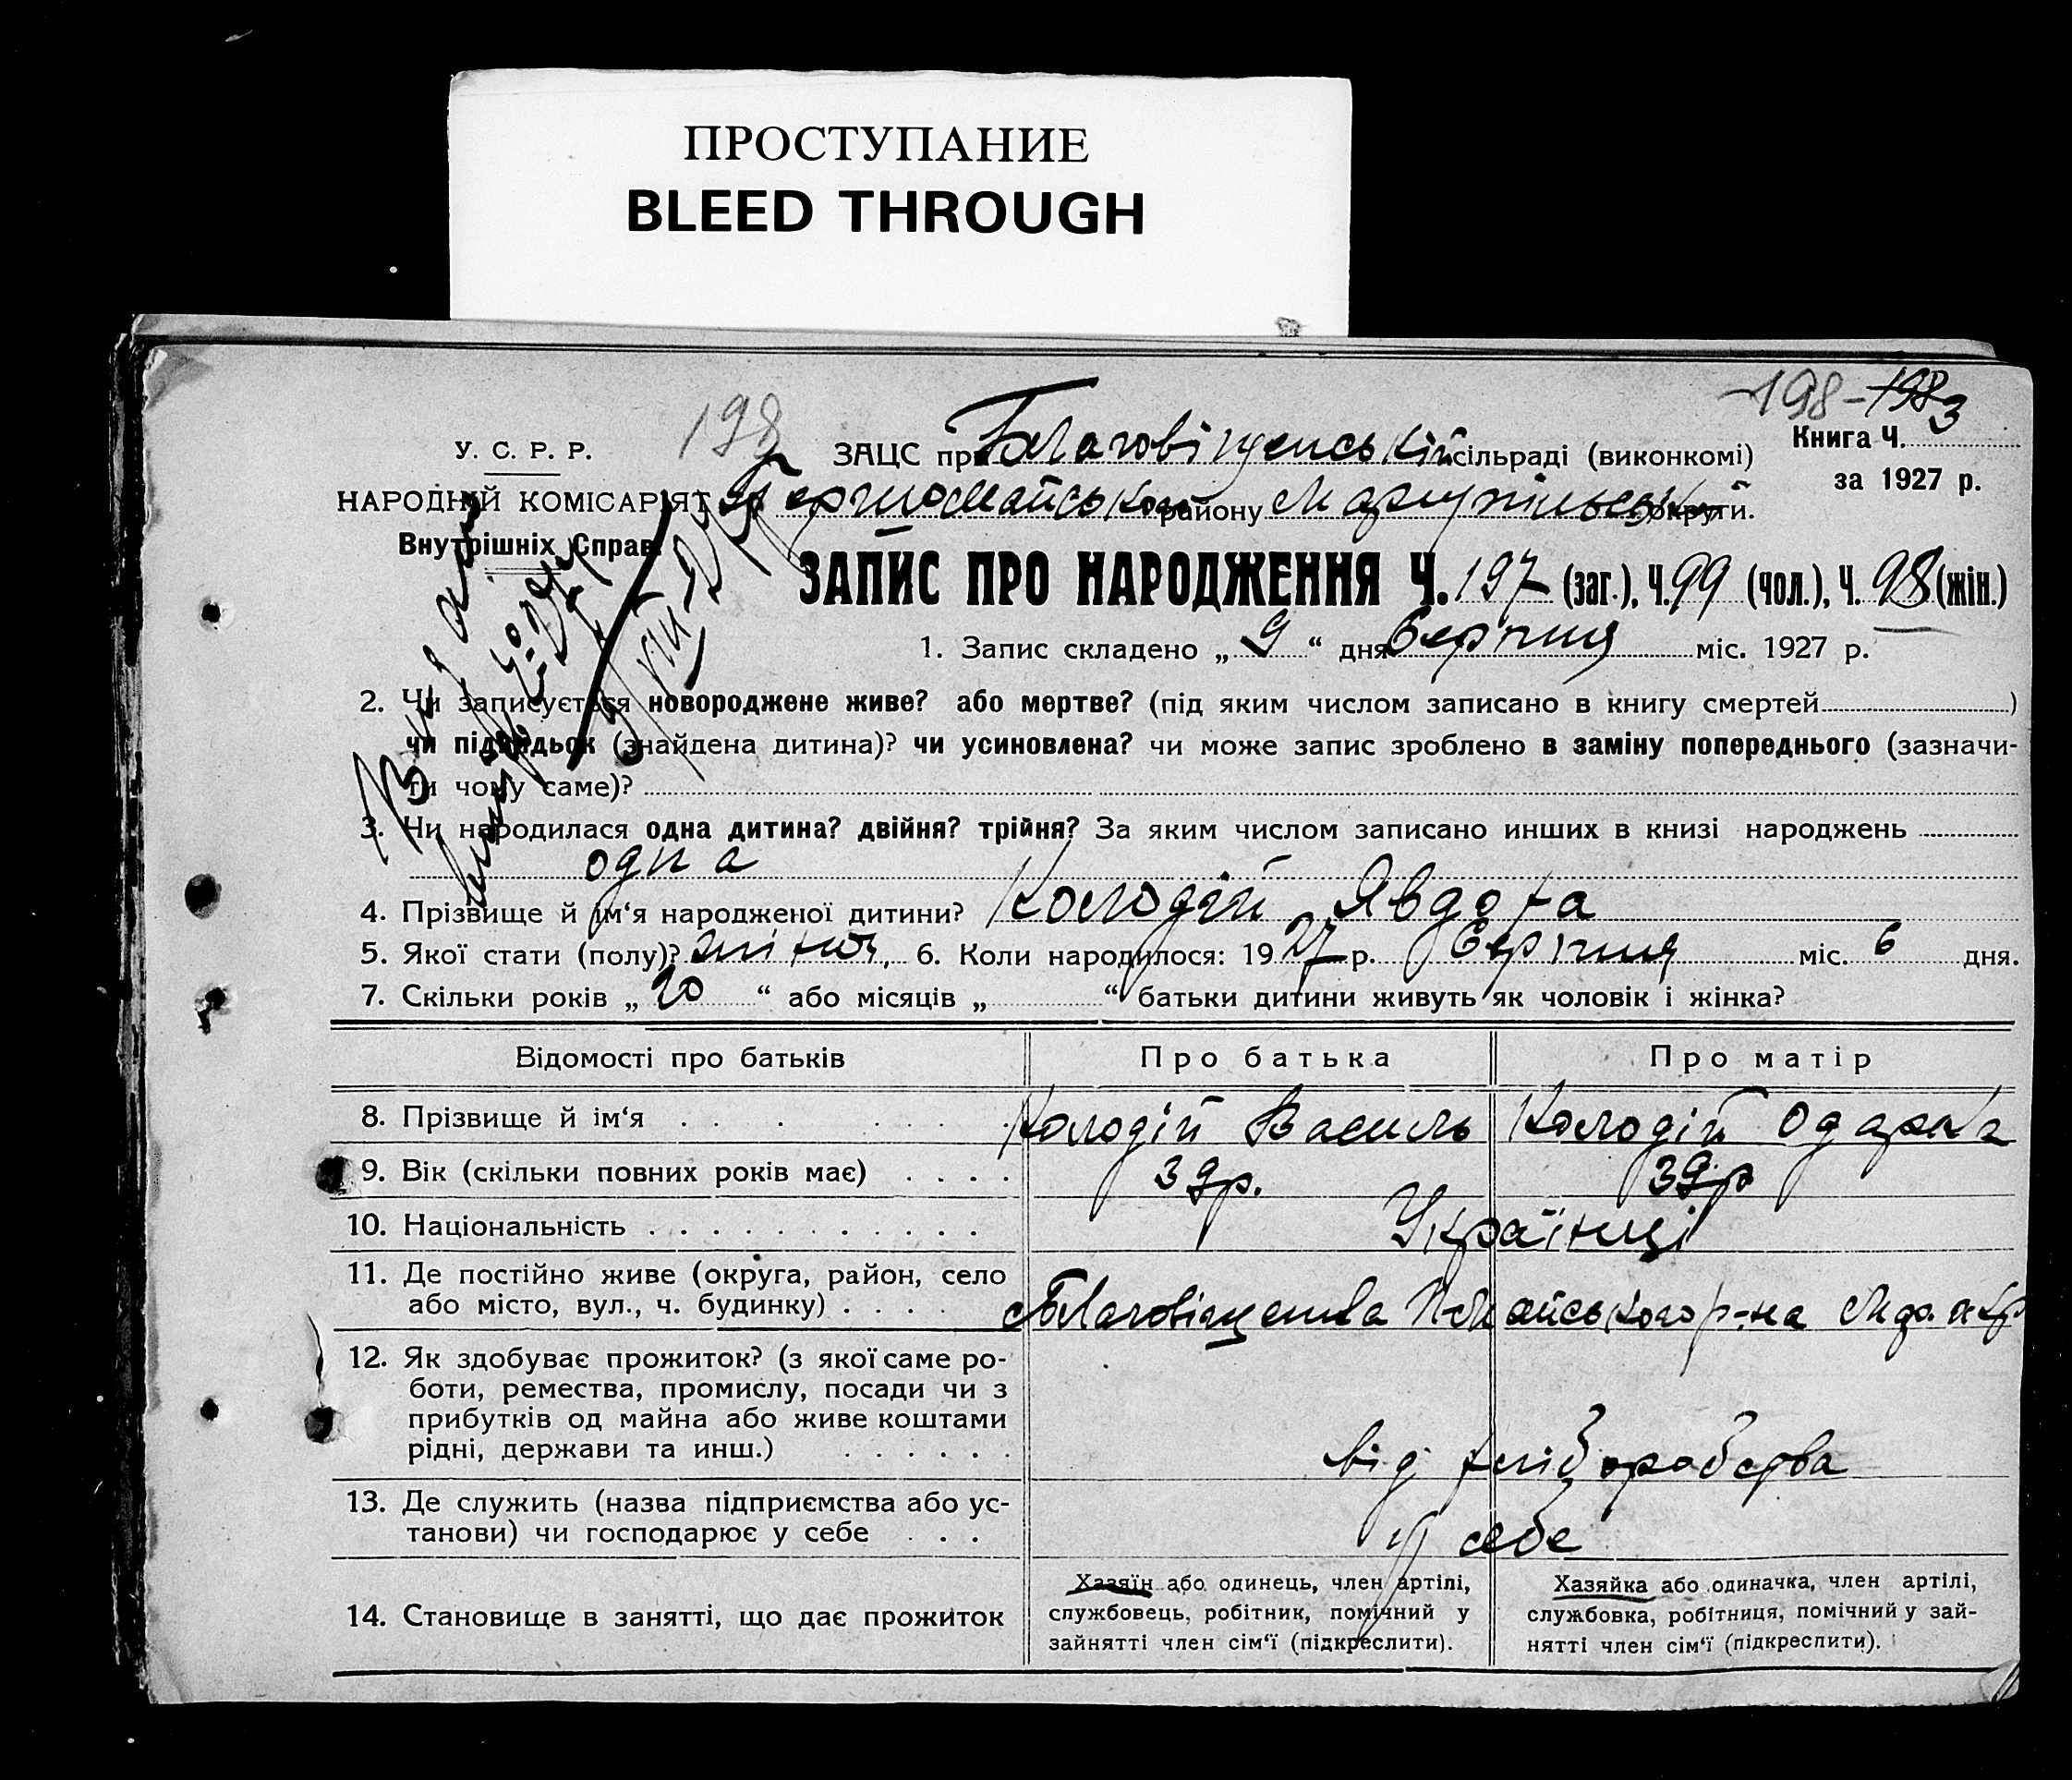 ПРОСТУПАНИЕ
BLEED THROUGH
198 - 198
198
У. С. Р. Р.
ЗАЦС при Благовіщенській сільраді (виконкомі)
Книга Ч. 3
за 1927 р.
НАРОДНІЙ КОМІСАРІЯТ
Внутрішніх Справ.
Першомайського району Маріупільської округи.
ЗАПИС ПРО НАРОДЖЕННЯ Ч. 197 (заг.), Ч. 99 (чол.), Ч. 98 (жін.)
1. Запис складено „ 9 “ дня Серпня міс. 1927 р.
2. Чи записується новороджене живе? або мертве? (під яким числом записано в книгу смертей )
чи підкидьок (знайдена дитина)? чи усиновлена? чи може запис зроблено в заміну попереднього (зазначи-
ти чому саме)?
3. Чи народилася одна дитина? двійня? трійня? За яким числом записано инших в книзі народжень
одна
4. Прізвище й ім‘я народженої дитини? Колодій Явдоха
5. Якої стати (полу)? жіноч. 6. Коли народилося: 1927 р. Серпня міс. 6 дня.
7. Скільки років „ 20 “ або місяців „ “ батьки дитини живуть як чоловік і жінка?
Відомості про батьків
Про батька
Про матір
8. Прізвище й ім‘я
Колодій Василь
Колодій Одарка
9. Вік (скільки повних років має)
39 р.
39 р
10. Національність
Українці
11. Де постійно живе (округа, район, село
або місто, вул., ч. будинку)
с Благовіщенка П-Майського р-на
12. Як здобуває прожиток? (з якої саме ро-
боти, ремества, промислу, посади чи з
прибутків од майна або живе коштами
рідні, держави та инш.)
від хліборобства
13. Де служить (назва підприємства або ус-
танови) чи господарює у себе
у себе
14. Становище в занятті, що дає прожиток
Хазяїн або одинець, член артілі,
службовець, робітник, помічний у
зайнятті член сім‘ї (підкреслити).
Хазяйка або одиначка, член артілі,
службовка, робітниця, помічний у зай-
нятті член сім‘ї (підкреслити).